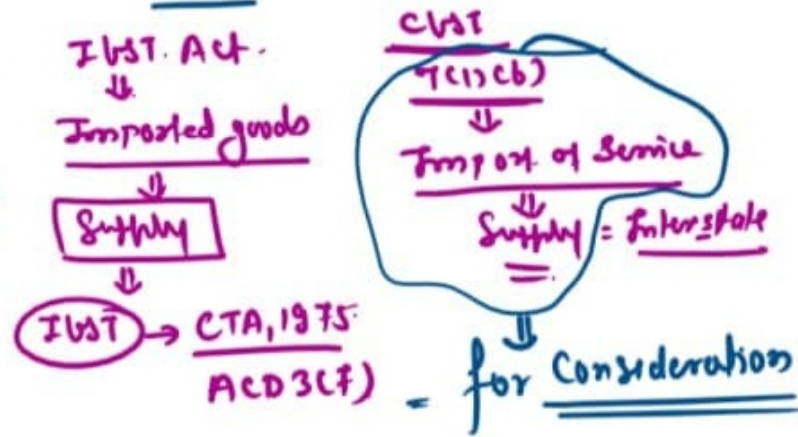 IGST. Act.
⇓
Imported goods
⇓
Supply
⇓
IGST → CTA, 1975.
ACD 3(7)
CGST
7(1)(b)
⇓
Import of Service
⇓
Supply = Interstate
⇓
- for Consideration